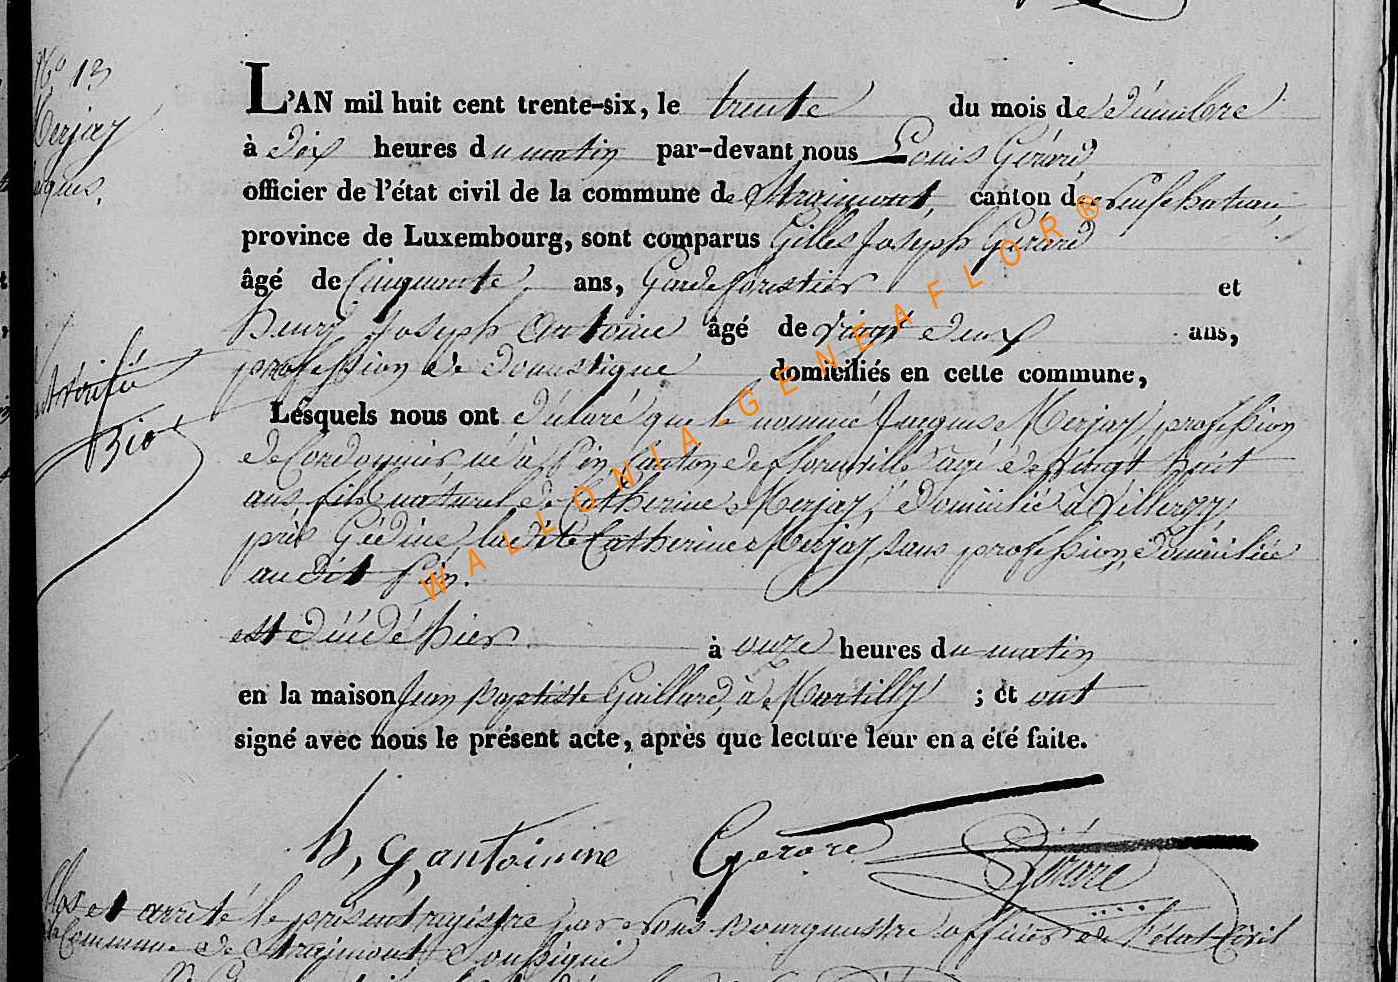 N° 13
Merjay
L'AN mil huit cent trente-six, le trente du mois de décembre
à dix heures du matin par-devant nous Louis Gérard
officier de l'état civil de la commune de Straimont, canton de neufchateau,
province de Luxembourg, sont comparus Gilles Joseph Gérard
âgé de Cinquante ans, Garde forestier et
henry Joseph Antoine âgé de vingt deux ans,
profession de domestique domiciliés en cette commune,
Lesquels nous ont déclaré que le nommé Jacques Merjay, profession
de Cordonnier né à Pin Canton de florenville agé de vingt huit
ans, fils naturel de Catherine Merjay, domicilié à Villerzy
près Gédine, ladite Catherine Merjay, sans profession, domiciliée
audit Pin.
est décédé hier à onze heures du matin
en la maison Jean Baptiste Gaillard, à Martilly ; et ont
signé avec nous le présent acte, après que lecture leur en a été faite.
h, g, antoinine Gerard Gérard
Clos et arrêté le présent registre par nous Bourguestre officier de l'état Civil
la Commune de Straimont soussigné
WALLONIA-GENEAFLOR®